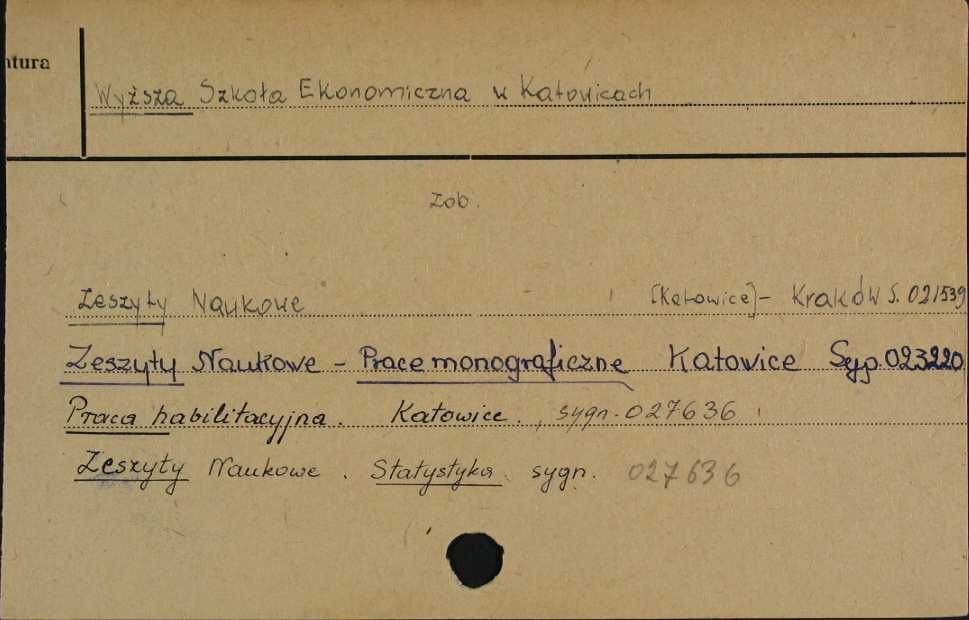 ntura
Wyższa Szkoła Ekonomiczna w Katowicach
Zob.
Zeszyty Naukowe [Katowice] - Kraków S. 021539
Zeszyty Naukowe - Prace monograficzne Katowice Syg. 023220
Praca habilitacyjna. Katowice. sygn. 027636
Zeszyty Naukowe. Statystyka. sygn. 027636